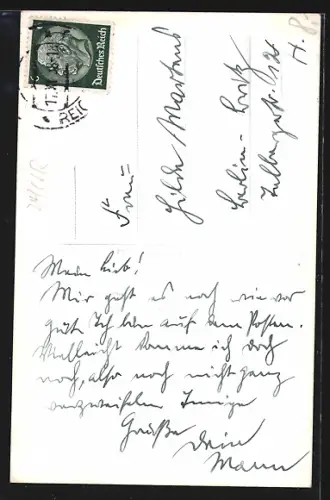 Deutsches Reich
Frau
Hilde Martens
Berlin-Britz
H.
Mein Lieb!
Mir geht es nach wie vor
gut. Ich bin auf dem Posten.
Vielleicht komme ich doch
noch, also noch nicht ganz
verzweifeln Innige
Grüße Dein
Mann